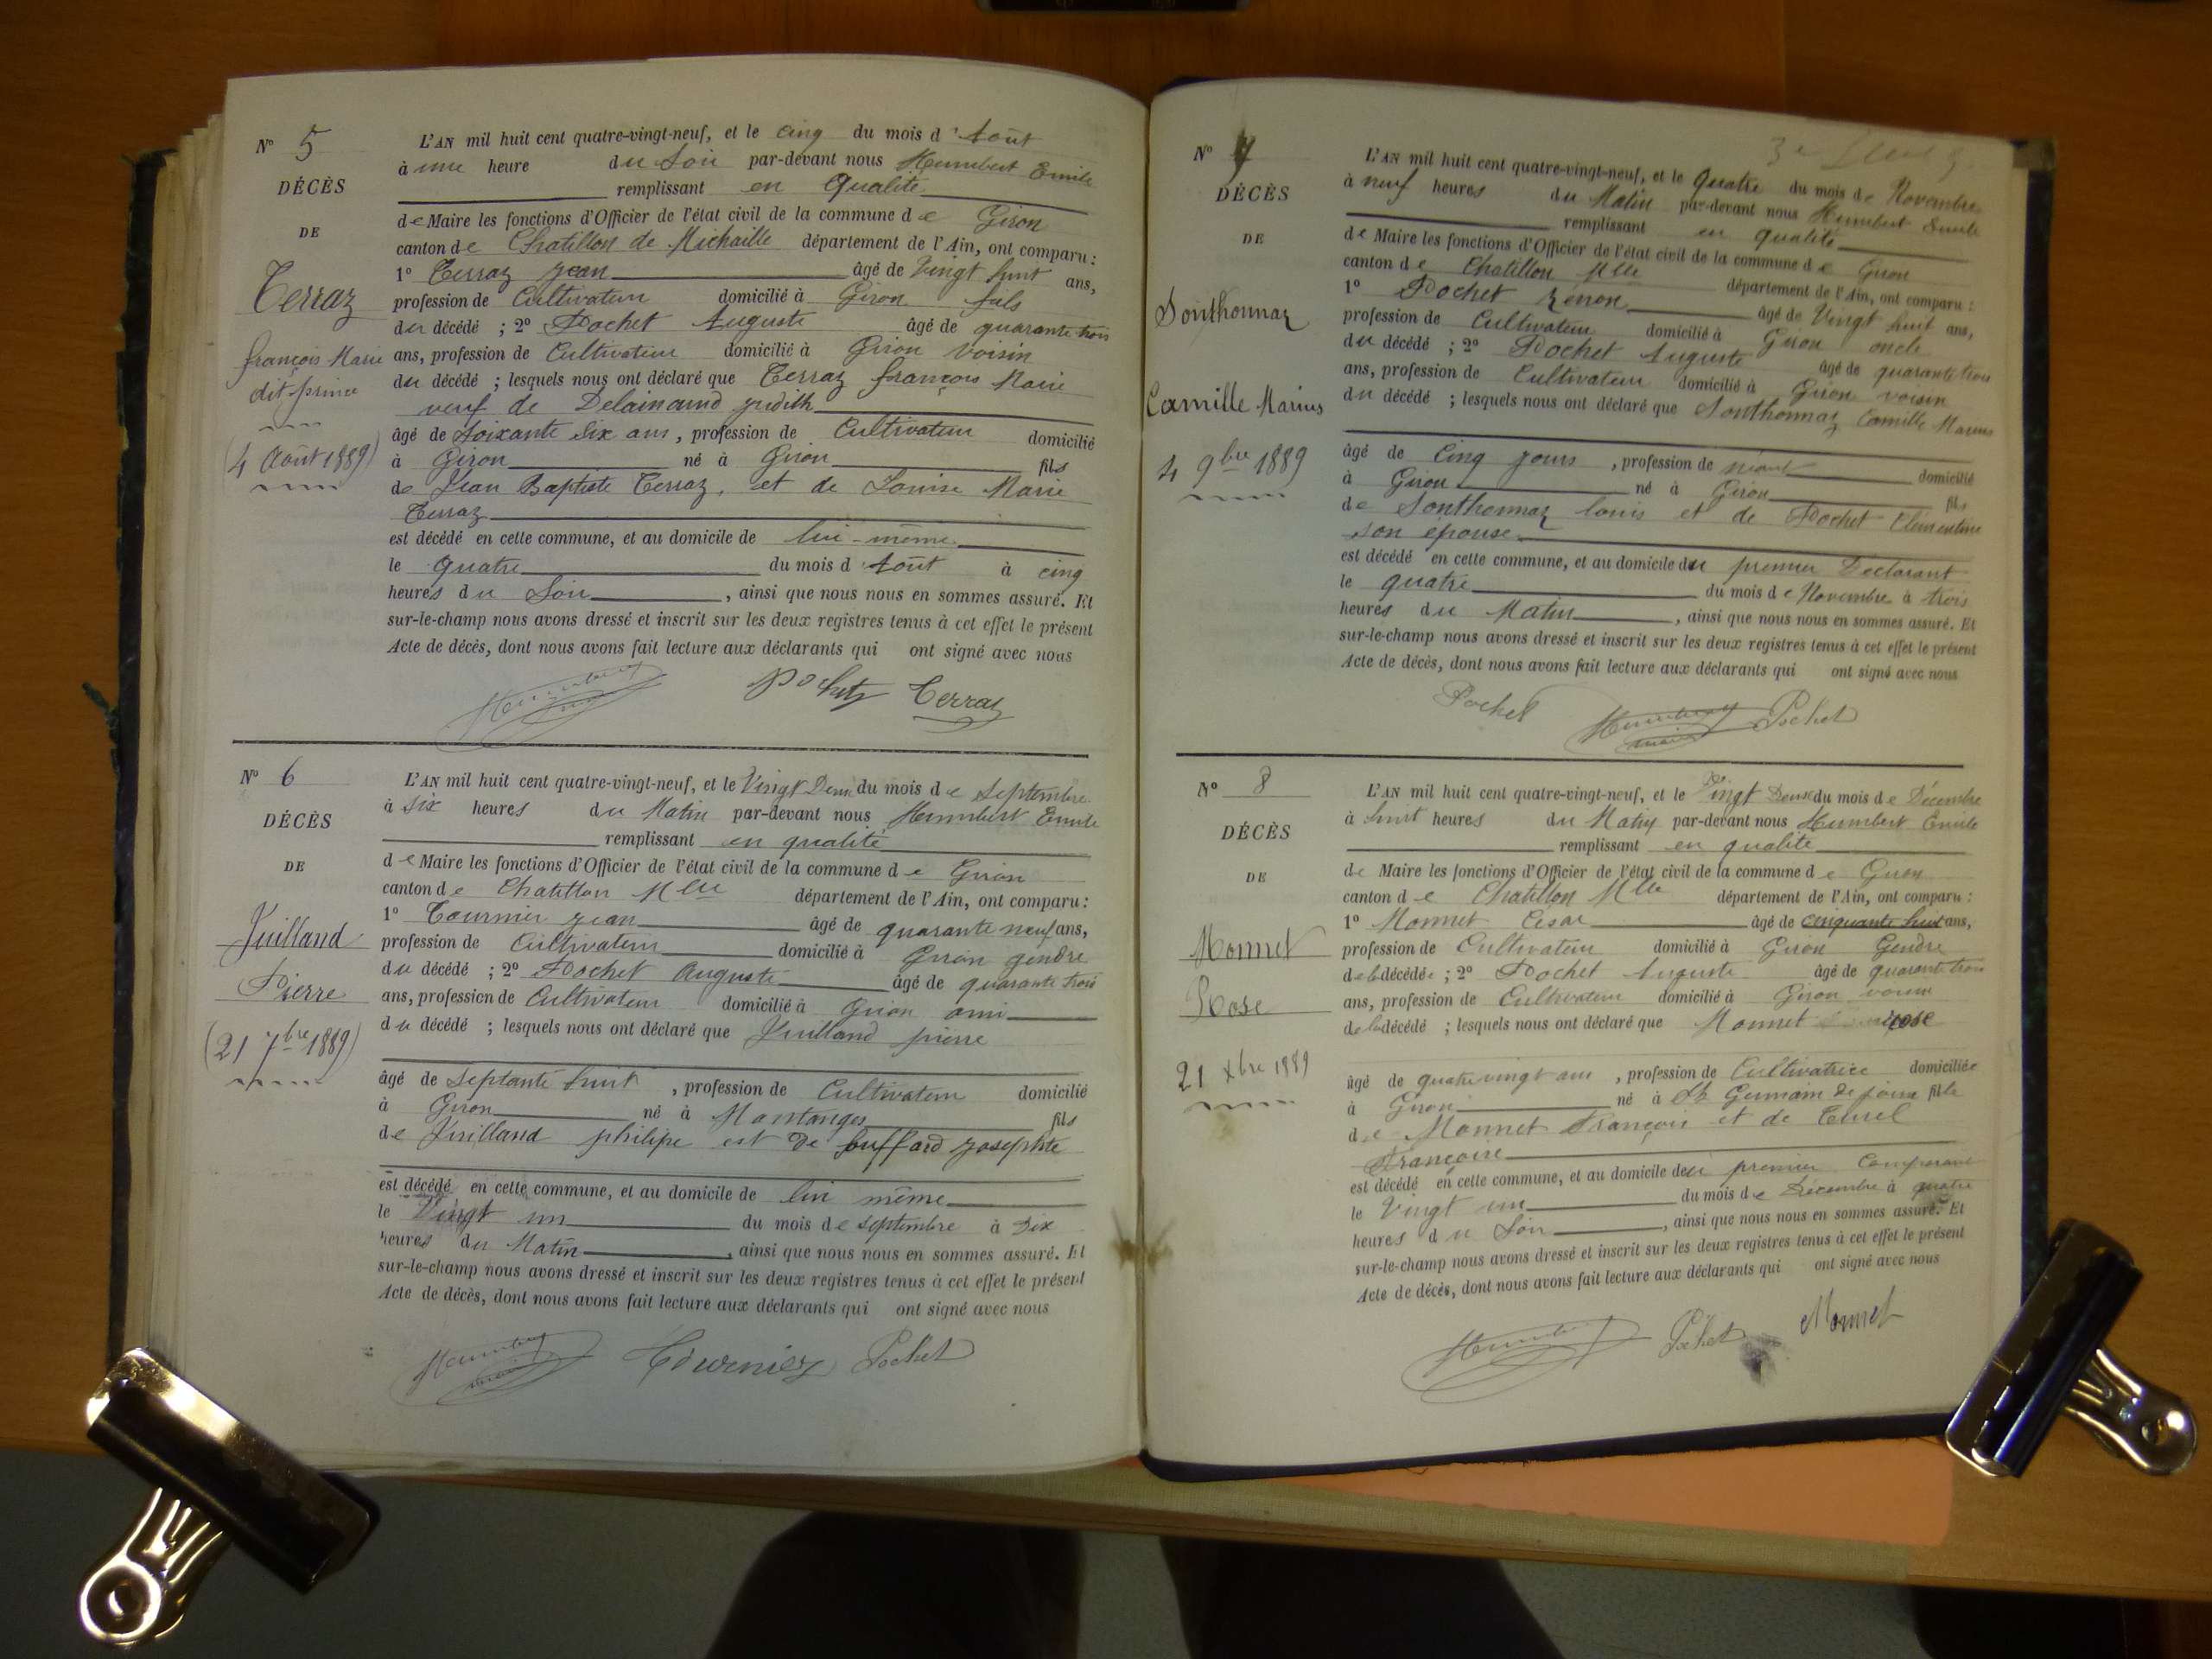 N° 5
DÉCÈS
DE
Terraz
françois Marie
dit prince
(4 Août 1889)
L'AN mil huit cent quatre-vingt-neuf, et le cinq du mois d'Août
à une heure du Soir par-devant nous Humbert Emile
remplissant en Qualité
de Maire les fonctions d'Officier de l'état civil de la commune de Giron
canton de Chatillon de Michaille département de l'Ain, ont comparu :
1° Terraz jean âgé de Vingt huit ans,
profession de Cultivateur domicilié à Giron fils
du décédé ; 2° Pochet Auguste âgé de quarante trois
ans, profession de Cultivateur domicilié à Giron voisin
du décédé ; lesquels nous ont déclaré que Terraz françois Marie
veuf de judith
âgé de Soixante Six ans, profession de Cultivateur domicilié
à Giron né à Giron fils
de Jean Baptiste Terraz, et de Louise Marie
Terraz
est décédé en cette commune, et au domicile de lui-même
le quatre du mois d'Août à cinq
heures du Soir, ainsi que nous nous en sommes assuré. Et
sur-le-champ nous avons dressé et inscrit sur les deux registres tenus à cet effet le présent
Acte de décès, dont nous avons fait lecture aux déclarants qui ont signé avec nous
Humbert Pochet Terraz
N° 6
DÉCÈS
DE
Juilland
Pierre
(21 7bre 1889)
L'AN mil huit cent quatre-vingt-neuf, et le Vingt Deux du mois de Septembre
à six heures du Matin par-devant nous Humbert Emile
remplissant en qualité
de Maire les fonctions d'Officier de l'état civil de la commune de Giron
canton de Chatillon Mlle département de l'Ain, ont comparu :
1° Tournier jean âgé de quarante neuf ans,
profession de Cultivateur domicilié à Giron gendre
du décédé ; 2° Pochet Auguste âgé de quarante trois
ans, profession de Cultivateur domicilié à Giron ami
du décédé ; lesquels nous ont déclaré que Juilland pierre
âgé de septante huit, profession de Cultivateur domicilié
à Giron né à Montanges fils
de Juilland philipe et de buffard josephte
est décédé en cette commune, et au domicile de lui même
le Vingt un du mois de septembre à Dix
heures du Matin, ainsi que nous nous en sommes assuré. Et
sur-le-champ nous avons dressé et inscrit sur les deux registres tenus à cet effet le présent
Acte de décès, dont nous avons fait lecture aux déclarants qui ont signé avec nous
Humbert maire Tournier Pochet
N° 7
DÉCÈS
DE
Sonthonnaz
Camille Marius
4 9bre 1889
L'AN mil huit cent quatre-vingt-neuf, et le Quatre du mois de Novembre
à neuf heures du Matin par-devant nous Humbert Emile
remplissant en qualité
de Maire les fonctions d'Officier de l'état civil de la commune de Giron
canton de Chatillon Mlle département de l'Ain, ont comparu :
1° Pochet Zénon âgé de Vingt huit ans,
profession de Cultivateur domicilié à Giron oncle
du décédé ; 2° Pochet Auguste âgé de quarante trois
ans, profession de Cultivateur domicilié à Giron voisin
du décédé ; lesquels nous ont déclaré que Sonthonnaz Camille Marius
âgé de Cinq jours, profession de néant domicilié
à Giron né à Giron fils
de Sonthonnaz louis et de Pochet Clémentine
son épouse
est décédé en cette commune, et au domicile du premier Déclarant
le quatre du mois de Novembre à trois
heures du Matin, ainsi que nous nous en sommes assuré. Et
sur-le-champ nous avons dressé et inscrit sur les deux registres tenus à cet effet le présent
Acte de décès, dont nous avons fait lecture aux déclarants qui ont signé avec nous
Pochet Humbert maire Pochet
N° 8
DÉCÈS
DE
Monnet
Rose
21 Xbre 1889
L'AN mil huit cent quatre-vingt-neuf, et le Vingt Deux du mois de Décembre
à huit heures du Matin par-devant nous Humbert Emile
remplissant en qualité
de Maire les fonctions d'Officier de l'état civil de la commune de Giron
canton de Chatillon Mlle département de l'Ain, ont comparu :
1° Monnet Cesar âgé de cinquante huit ans,
profession de Cultivateur domicilié à Giron Gendre
de la décédée ; 2° Pochet Auguste âgé de quarante trois
ans, profession de Cultivateur domicilié à Giron voisin
de la décédé ; lesquels nous ont déclaré que Monnet rose
âgé de quatre vingt ans, profession de Cultivatrice domiciliée
à Giron né à St Germain de joux fille
de Monnet François et de Turel
Françoise
est décédé en cette commune, et au domicile du premier Comparant
le Vingt un du mois de Décembre à quatre
heures du Soir, ainsi que nous nous en sommes assuré. Et
sur-le-champ nous avons dressé et inscrit sur les deux registres tenus à cet effet le présent
Acte de décès, dont nous avons fait lecture aux déclarants qui ont signé avec nous
Humbert Pochet Monnet